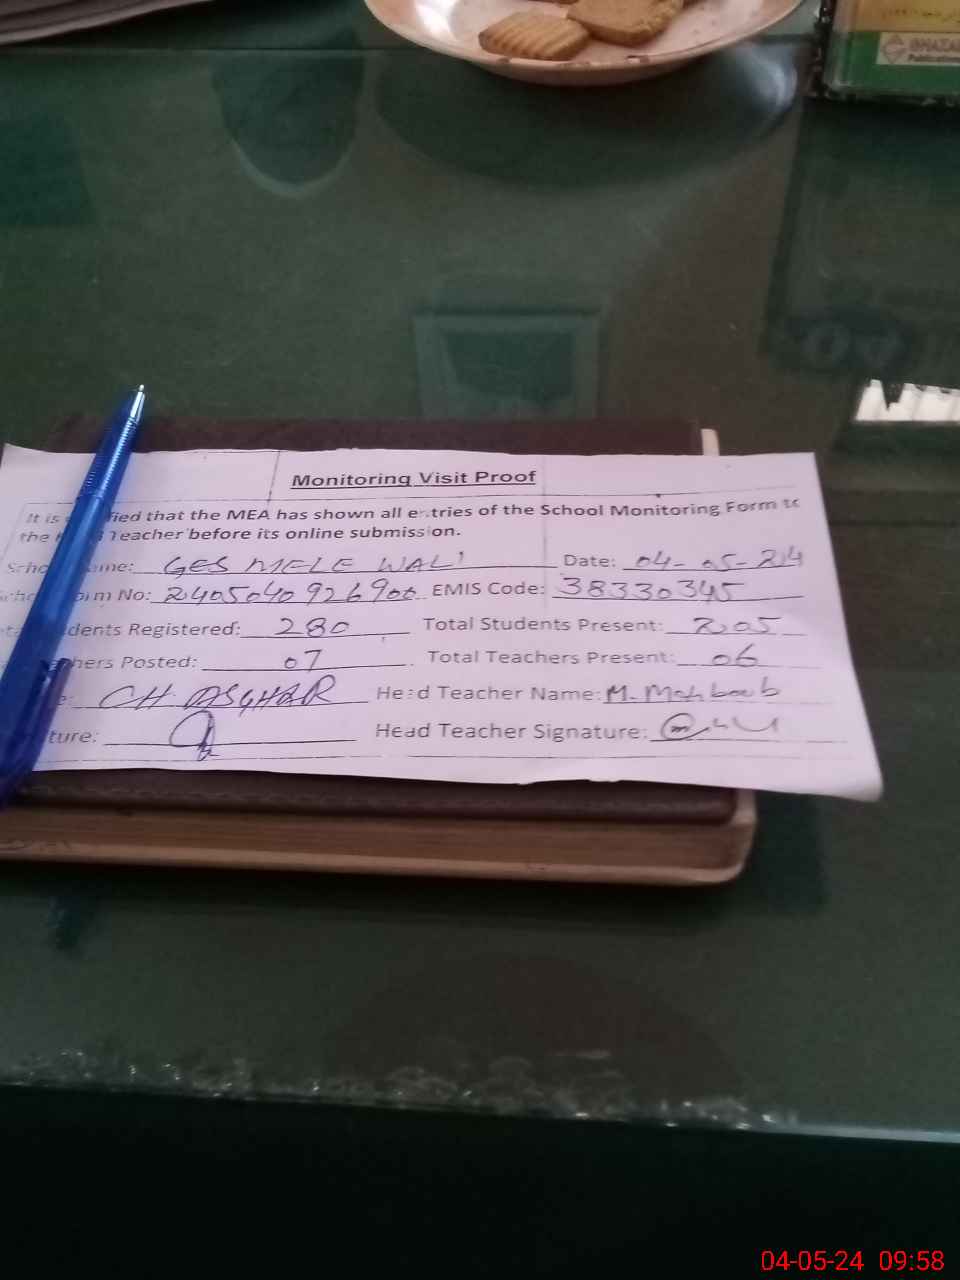 Publication
Monitoring Visit Proof
It is fied that the MEA has shown all entries of the School Monitoring Form to
the Teacher before its online submission.
Scho ame: GES MELE WALI Date: 04-05-24
m No: 2405040926900 EMIS Code: 38330345
dents Registered: 280 Total Students Present: 205
hers Posted: 07 Total Teachers Present: 06
e: CH ASGHAR Head Teacher Name: M. Mehboob
ture: Head Teacher Signature:
04-05-24 09:58